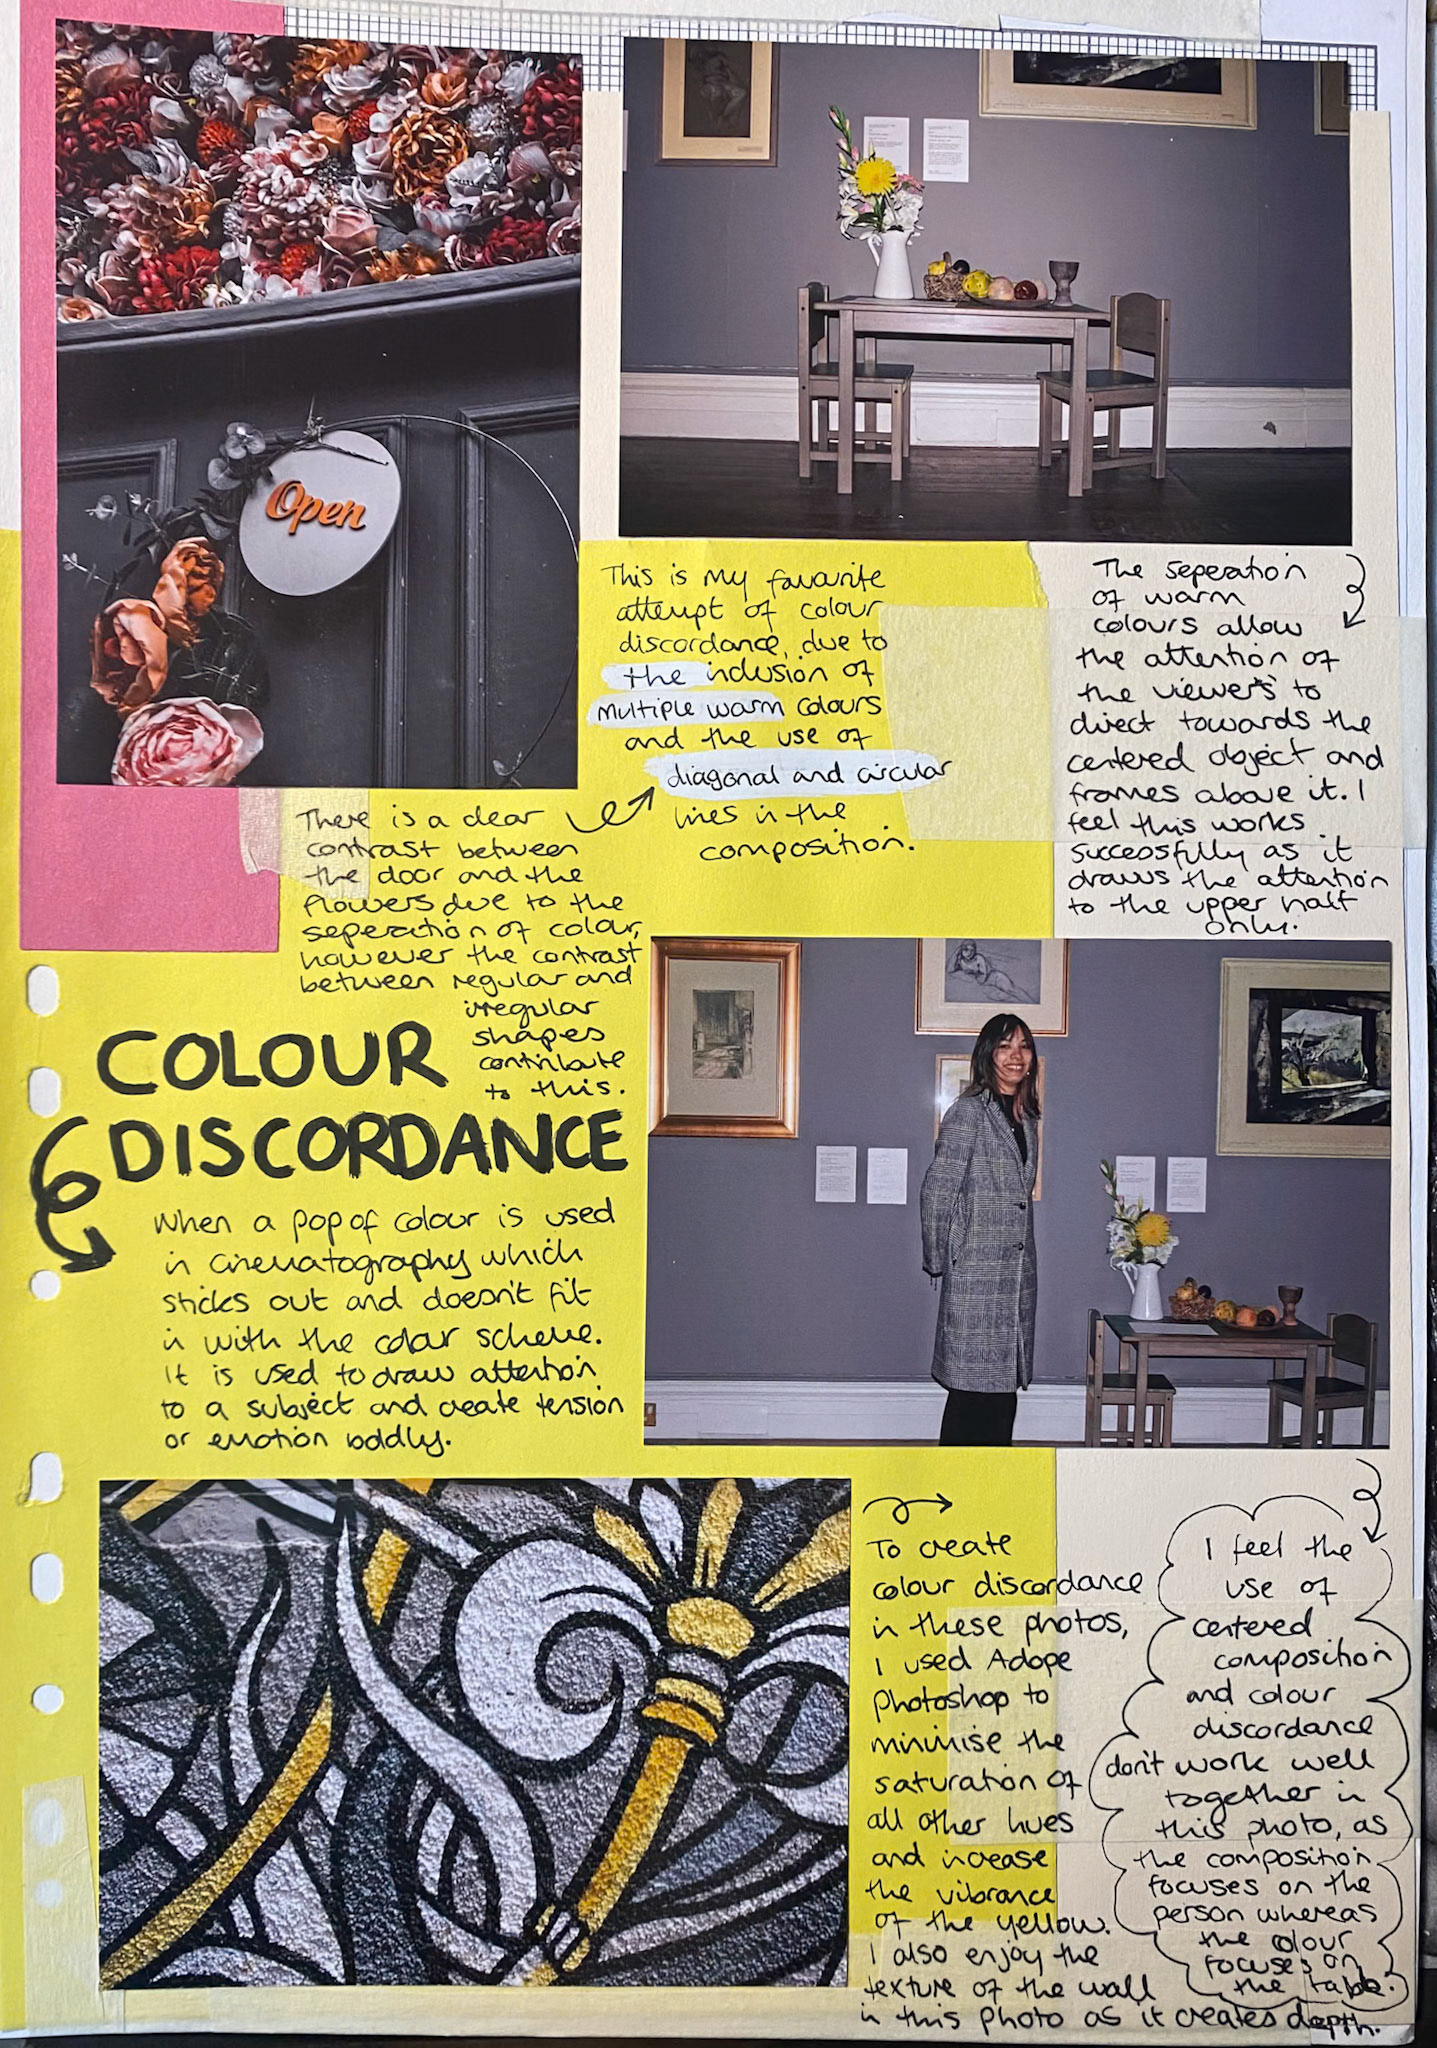 Open
This is my favourite
attempt of colour
discordance, due to
the inclusion of
multiple warm colours
and the use of
diagonal and circular
lines in the
composition.
The seperation
of warm
colours allow
the attention of
the viewers to
direct towards the
centered object and
frames above it. I
feel this works
successfully as it
draws the attention
to the upper half
only.
There is a clear
contrast between
the door and the
flowers due to the
seperation of colour,
however the contrast
between regular and
irregular
shapes
contribute
to this.
COLOUR
DISCORDANCE
When a pop of colour is used
in cinematography which
sticks out and doesn't fit
in with the colour scheme.
It is used to draw attention
to a subject and create tension
or emotion boldly.
To create
colour discordance
in these photos,
I used Adope
Photoshop to
minimise the
saturation of
all other hues
and increase
the vibrance
of the yellow.
I also enjoy the
texture of the wall
in this photo as it creates depth.
I feel the
use of
centered
composition
and colour
discordance
don't work well
together in
this photo, as
the composition
focuses on the
person whereas
the colour
focuses on
the table.